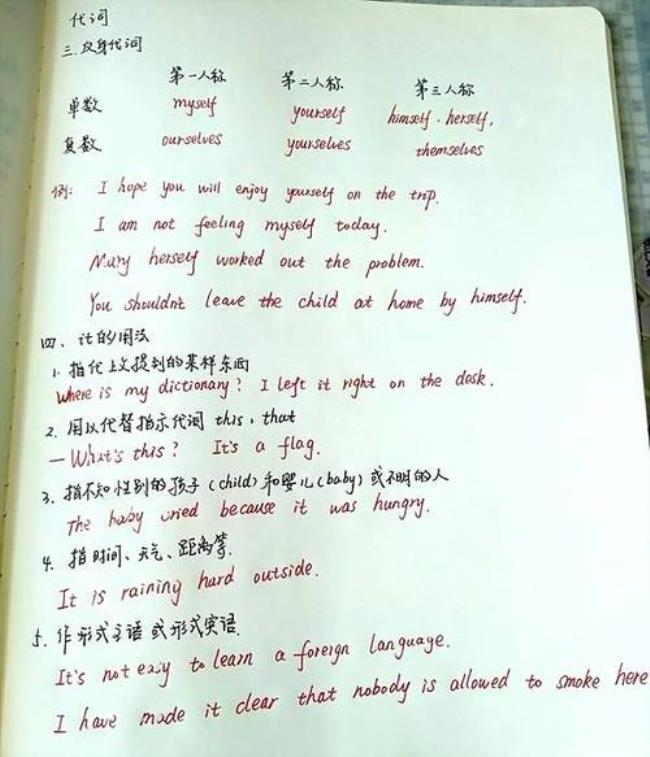 代词
三.反身代词
第一人称 第二人称 第三人称
单数 myself yourself himself. herself,
复数 ourselves yourselves themselves
例: I hope you will enjoy yourself on the trip.
I am not feeling myself today.
Mary herself worked out the problem.
You shouldn't leave the child at home by himself.
四、it的用法
1. 指代上文提到的某样东西
Where is my dictionary? I left it right on the desk.
2. 用以代替指示代词 this, that
— What's this? It's a flag.
3. 指不知性别的孩子(child)和婴儿(baby)或不明的人
The baby cried because it was hungry.
4. 指时间、天气、距离等.
It is raining hard outside.
5. 作形式主语或形式宾语.
It's not easy to learn a foreign language.
I have made it clear that nobody is allowed to smoke here